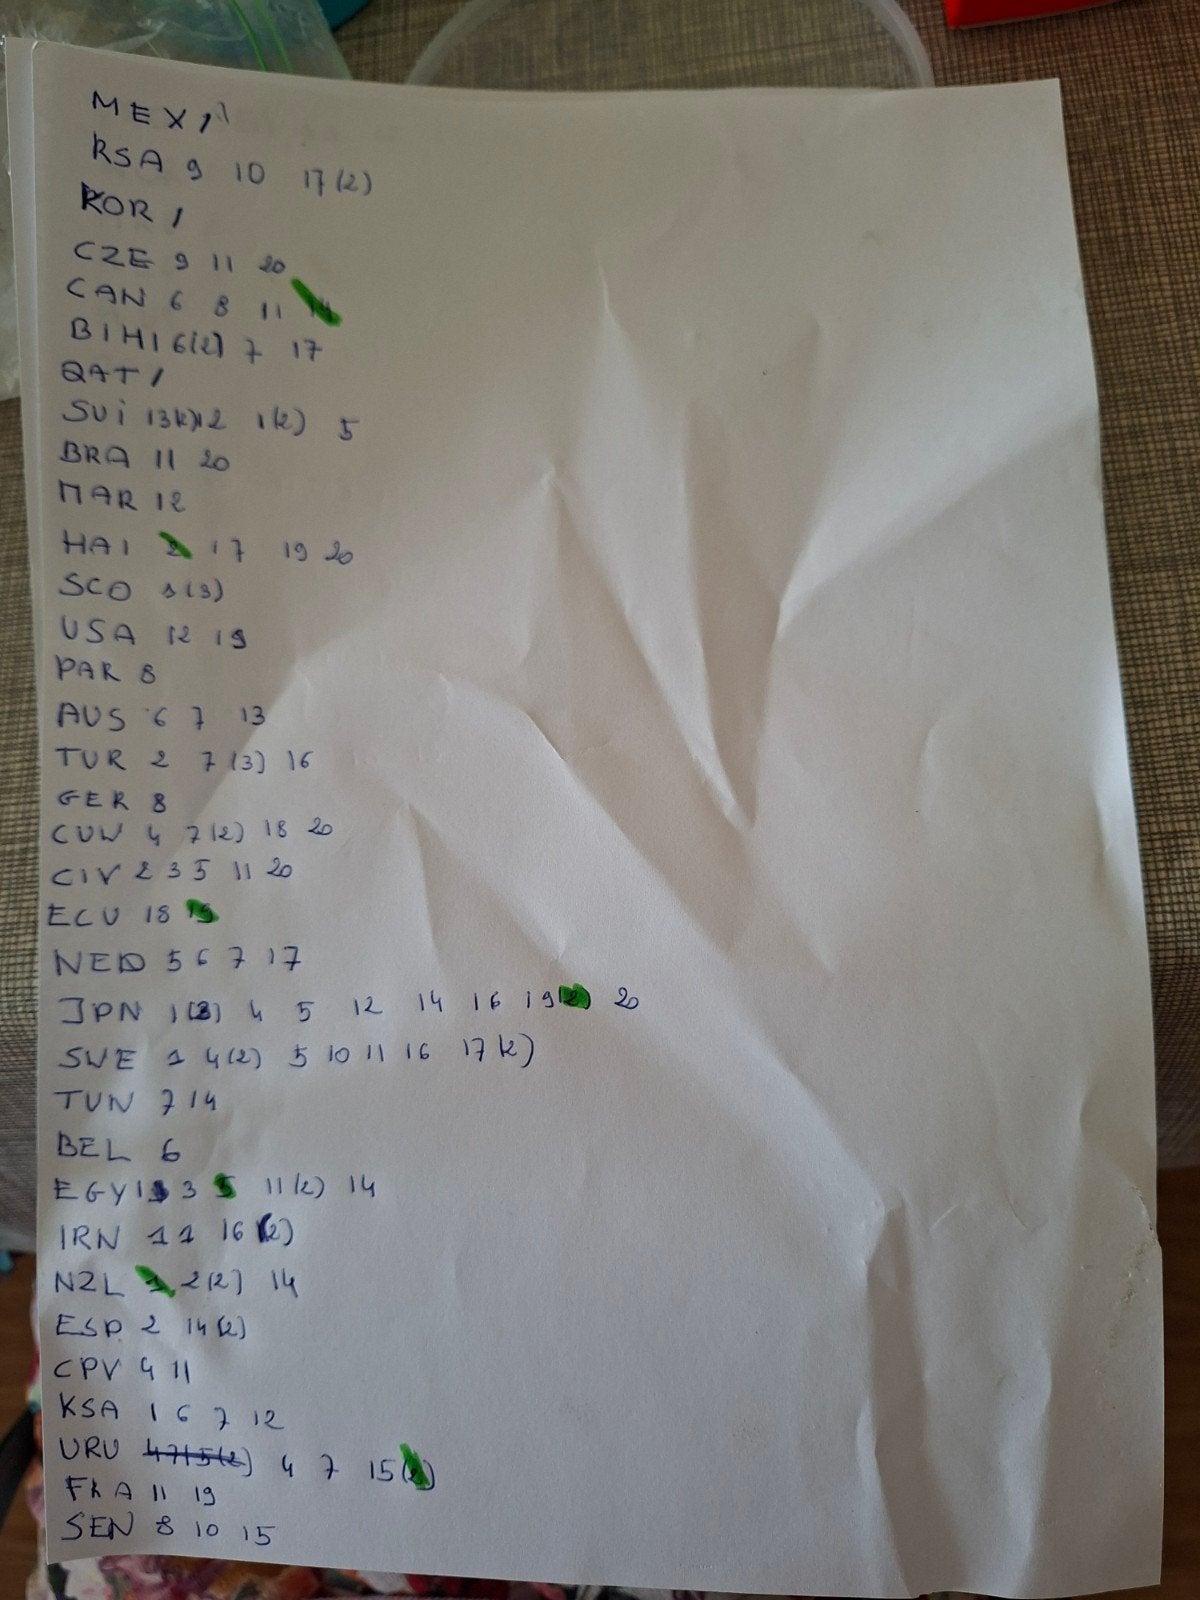 MEX /
RSA 9 10 17(2)
KOR /
CZE 9 11 20
CAN 6 8 11 14
BIH 1 6(2) 7 17
QAT /
SUI 13(2) 12 1(2) 5
BRA 11 20
MAR 12
HAI 2 17 19 20
SCO 1(3)
USA 12 19
PAR 8
AUS 6 7 13
TUR 2 7(3) 16
GER 8
CUW 4 7(2) 18 20
CIV 2 3 5 11 20
ECU 18 19
NED 5 6 7 17
JPN 4 5 12 14 16 19(2) 20
SWE 1 4(2) 5 10 11 16 17(2)
TUN 7 14
BEL 6
EGY 3 5 11(2) 14
IRN 11 16(2)
NZL 1 2(2) 14
ESP 2 14(2)
CPV 4 11
KSA 1 6 7 12
URU 4 7 15(2) 4 7 15(2)
FRA 11 19
SEN 8 10 15